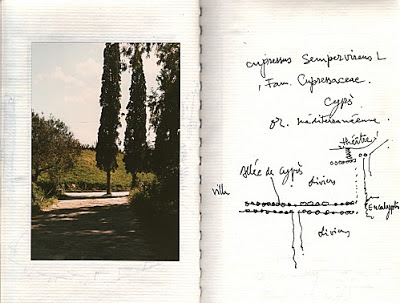 cupressus Sempervirens L
, Fam. Cupressaceae.
Cyprè
or. méditerranéenne.
théâtre
Allée de cyprès
oliviers
villa
Eucalyptus
oliviers